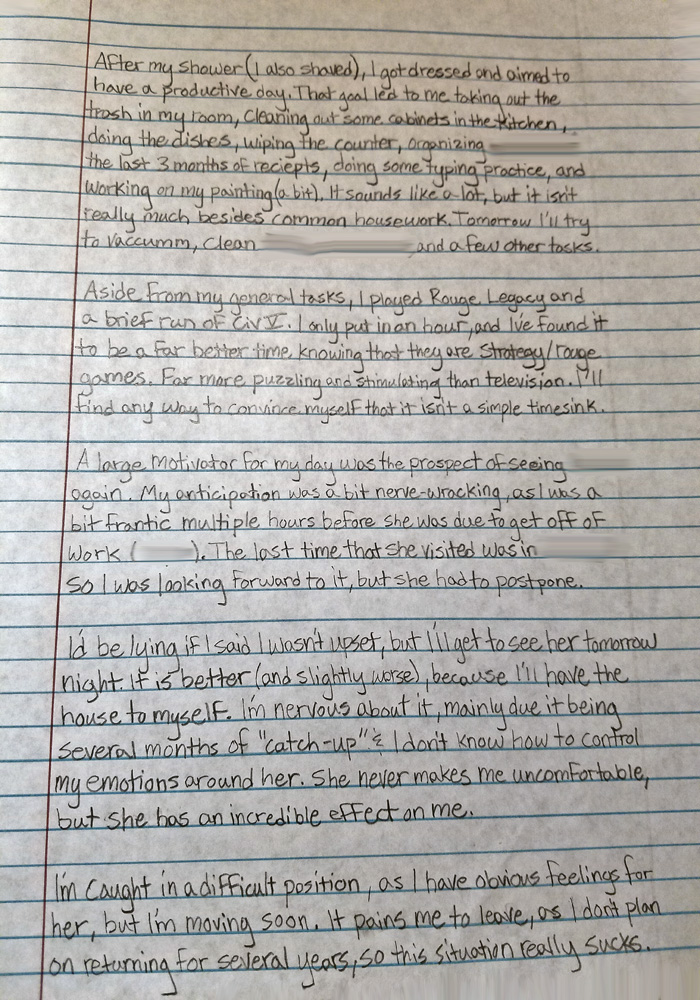 After my shower (I also shaved), I got dressed and aimed to
have a productive day. That goal led to me taking out the
trash in my room, cleaning out some cabinets in the kitchen,
doing the dishes, wiping the counter, organizing
the last 3 months of reciepts, doing some typing practice, and
working on my painting (a bit). It sounds like a lot, but it isn't
really much besides common housework. Tomorrow I'll try
to vaccumm, clean and a few other tasks.
Aside from my general tasks, I played Rouge Legacy and
a brief run of Civ V. I only put in an hour, and I've found it
to be a far better time, knowing that they are strategy/rouge
games. Far more puzzling and stimulating than television. I'll
find any way to convince myself that it isn't a simple timesink.
A large motivator for my day was the prospect of seeing
again. My anticipation was a bit nerve-wracking, as I was a
bit frantic multiple hours before she was due to get off of
work ( ). The last time that she visited was in
so I was looking forward to it, but she had to postpone.
I'd be lying if I said I wasn't upset, but I'll get to see her tomorrow
night. It is better (and slightly worse), because I'll have the
house to myself. I'm nervous about it, mainly due it being
several months of "catch-up" & I don't know how to control
my emotions around her. She never makes me uncomfortable,
but she has an incredible effect on me.
I'm caught in a difficult position, as I have obvious feelings for
her, but I'm moving soon. It pains me to leave, as I don't plan
on returning for several years, so this situation really sucks.